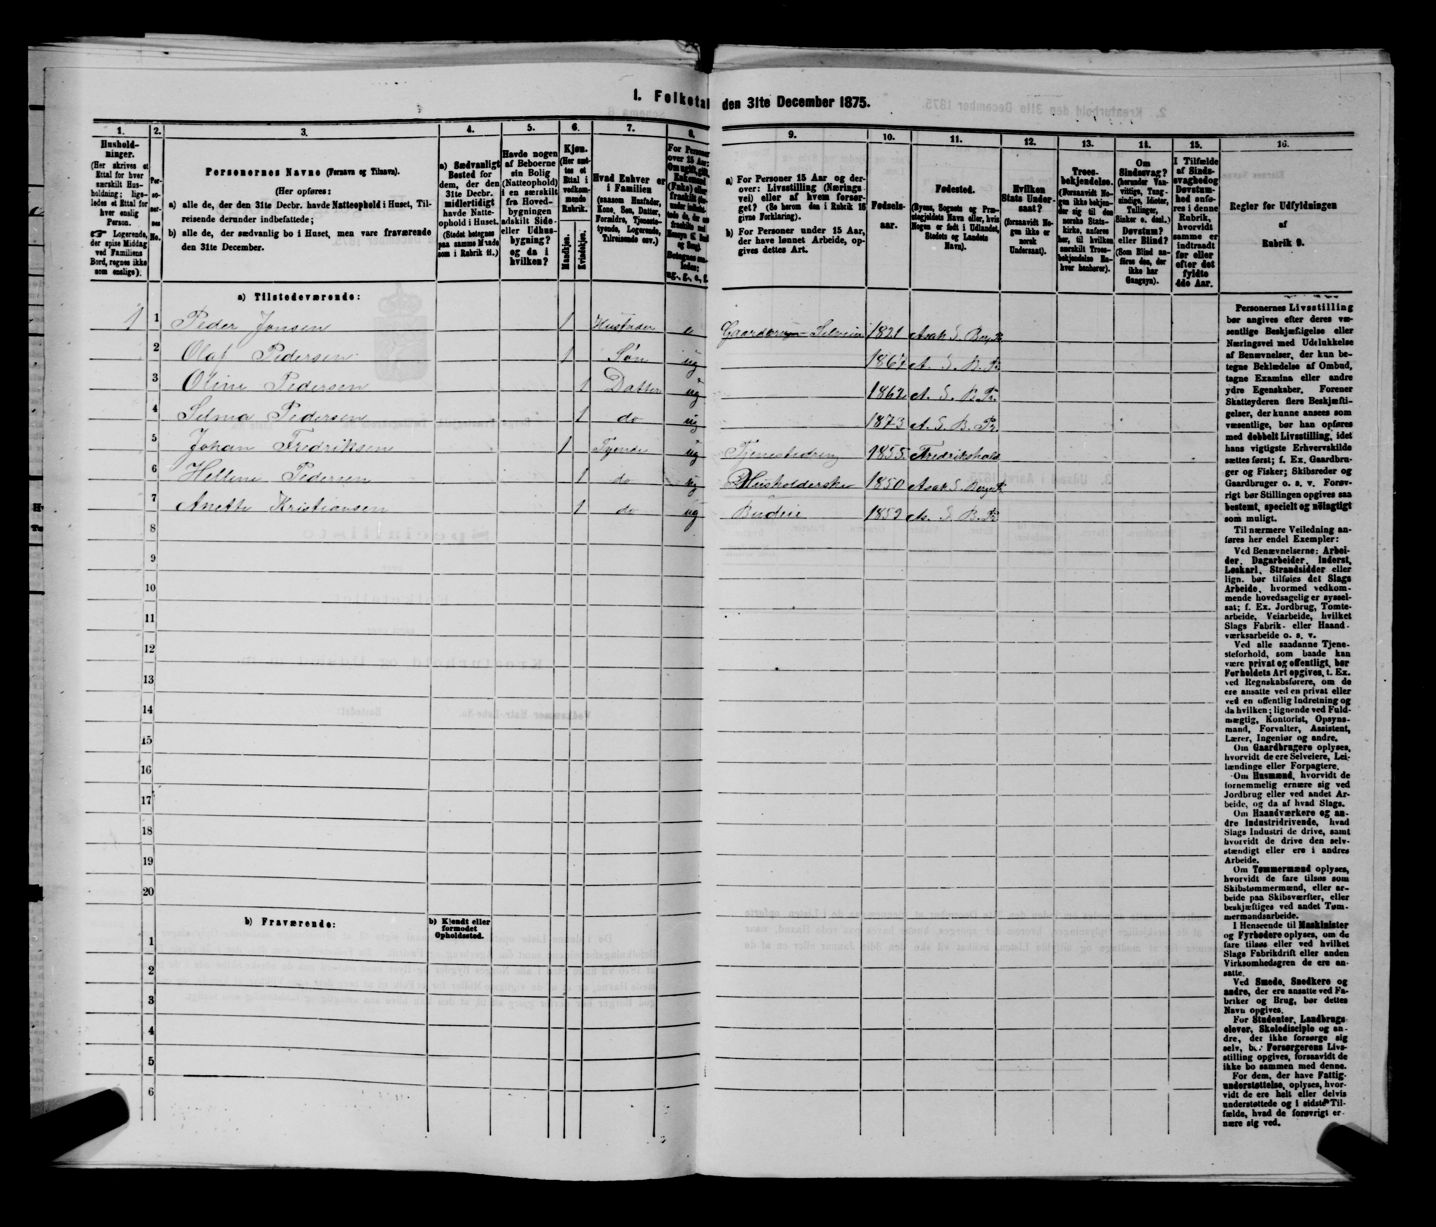 1. Folketal den 31te December 1875.
1. 2. 3. 4. 5. 6. 7. 8. 9. 10. 11. 12. 13. 14. 15. 16.
Hushold-
ninger.
(Her skrives et
Ettal for hver
særskilt Hus-
holdning; lige-
ledes et Ettal for
hver enslig
Person.
Logerende,
der spise Middag
ved Familiens
Bord, regnes ikke
som enslige).
Personernes Navne (Fornavn og Tilnavn).
(Her opføres:
a) alle de, der den 31te Decbr. havde Natteophold i Huset, Til-
reisende derunder indbefattede;
b) alle de, der sædvanlig bo i Huset, men vare fraværende
den 31te December.
a) Sædvanligt
Bosted for
dem, der den
31te Decbr.
midlertidigt
havde Natte-
ophold i Huset.
(Stedet betegnes
paa samme Maade
som i Rubrik 11.)
Havde nogen
af Beboerne
sin Bolig
(Natteophold)
i en særskilt
fra Hoved-
bygningen
adskilt Side-
eller Udhus-
bygning?
og da i
hvilken?
Kjøn.
(Her sæt-
tes et
Ettal i
vedkom-
mende
Rubrik.
Mandkjøn.
Kvindekjøn.
Hvad Enhver er
i Familien
(saasom Husfader,
Kone, Søn, Datter,
Forældre, Tjeneste-
tyende, Logerende,
Tilreisende osv.)
For Personer
over 15 Aar:
a) For Personer 15 Aar og der-
over: Livsstilling (Nærings-
vei) eller af hvem forsør-
get? (Se herom den i Rubrik 16
givne Forklaring).
b) For Personer under 15 Aar,
der have lønnet Arbeide, op-
gives dettes Art.
Fødsels-
aar.
Fødested.
(Byens, Sognets og Præ-
stegjeldets Navn eller, hvis
Nogen er født i Udlandet,
Stedets og Landets
Navn).
Hvilken
Stats Under-
saat?
(forsaavidt No-
gen ikke er
norsk
Undersaat).
Troes-
bekjendelse.
(Forsaavidt No-
gen ikke bekjen-
der sig til den
norske Stats-
kirke, anføres
her, til hvilken
særskilt Troes-
bekjendelse En-
hver henhører).
Om
Sindssvag?
(herunder Van-
vittige, Tung-
sindige, Idioter,
Tullinger,
Sinker o. desl.)
Døvstum?
eller Blind?
(Som Blind an-
føres den, der
ikke har
Gangsyn).
I Tilfælde
af Sinds-
svaghed og
Døvstum-
hed anfø-
res i denne
Rubrik,
hvorvidt
samme er
indtraadt
før eller
efter det
fyldte
4de Aar.
Regler for Udfyldningen
af
Rubrik 9.
a) Tilstedeværende:
1 1 Peder Jonsen 1 Husfader Gaardbruger Selveier 1821 Asak S. Berg Pr.
2 Olaf Pedersen 1 Søn ug 1867 A. S. B. Pr.
3 Oline Pedersen 1 Datter ug 1862 A. S. B. Pr.
4 Selma Pedersen 1 do ug 1873 A. S. B. Pr.
5 Johan Fredriksen 1 Tyende ug Tjenestedreng 1855 Fredrikshald
6 Helline Pedersen 1 do ug Husholderske 1850 Asak S. Berg Pr.
7 Anette Kristiansen 1 do ug Budeie 1852 As. S. B. Pr.
8
9
10
11
12
13
14
15
16
17
18
19
20
b) Fraværende:
b) Kjendt eller
formodet
Opholdssted.
1
2
3
4
5
6
Personernes Livsstilling
bør angives efter deres væ-
sentlige Beskjæftigelse eller
Næringsvei med Udelukkelse
af Benævnelser, der kun be-
tegne Beklædelse af Ombud,
tagne Examina eller andre
ydre Egenskaber. Forener
Skatteyderen flere Beskjæfti-
gelser, der kunne ansees som
væsentlige, bør han opføres
med dobbelt Livsstilling, idet
hans vigtigste Erhvervskilde
sættes først; f. Ex. Gaardbru-
ger og Fisker; Skibsreder og
Gaardbruger o. s. v. Forøv-
rigt bør Stillingen opgives saa
bestemt, specielt og nøiagtigt
som muligt.
Til nærmere Veiledning an-
føres her endel Exempler:
Ved Benævnelserne: Arbei-
der, Dagarbeider, Inderst,
Løskarl, Strandsidder eller
lign. bør tilføies det Slags
Arbeide, hvormed vedkom-
mende hovedsagelig er syssel-
sat; f. Ex. Jordbrug, Tomte-
arbeide, Veiarbeide, hvilket
Slags Fabrik- eller Haand-
værksarbeide o. s. v.
Ved alle saadanne Tjene-
steforhold, som baade kan
være privat og offentligt, bør
Forholdets Art opgives, t. Ex.
ved Regnskabsførere, om de
ere ansatte ved en privat eller
ved en offentlig Indretning og
da hvilken; lignende ved Fuld-
mægtig, Kontorist, Opsyns-
mand, Forvalter, Assistent,
Lærer, Ingeniør og andre.
Om Gaardbrugere oplyses,
hvorvidt de ere Selveiere, Lei-
lændinge eller Forpagtere.
Om Husmænd, hvorvidt de
fornemmelig ernære sig ved
Jordbrug eller ved andet Ar-
beide, og da af hvad Slags.
Om Haandværkere og an-
dre Industridrivende, hvad
Slags Industri de drive, samt
hvorvidt de drive den selv-
stændigt eller ere i andres
Arbeide.
Om Tømmermænd oplyses,
hvorvidt de fare tilsøs som
Skibstømmermænd, eller ar-
beide paa Skibsværfter, eller
beskjæftiges ved andet Tøm-
mermandsarbeide.
I Henseende til Maskinister
og Fyrbødere oplyses, om de
fare tilsøs eller ved hvilket
Slags Fabrikdrift eller anden
Virksomhedsgren de ere an-
satte.
Ved Smede, Snedkere og
andre, der ere ansatte ved Fa-
briker og Brug, bør dettes
Navn opgives.
For Studenter, Landbrugs-
elever, Skoledisciple og an-
dre, der ikke forsørge sig
selv, bør Forsørgerens Livs-
stilling opgives, forsaavidt de
ikke bo sammen med denne.
For dem, der have Fattig-
understøttelse, oplyses, hvor-
vidt de ere helt eller delvis
understøttede og i sidste Til-
fælde, hvad de forøvrigt er-
nære sig ved.